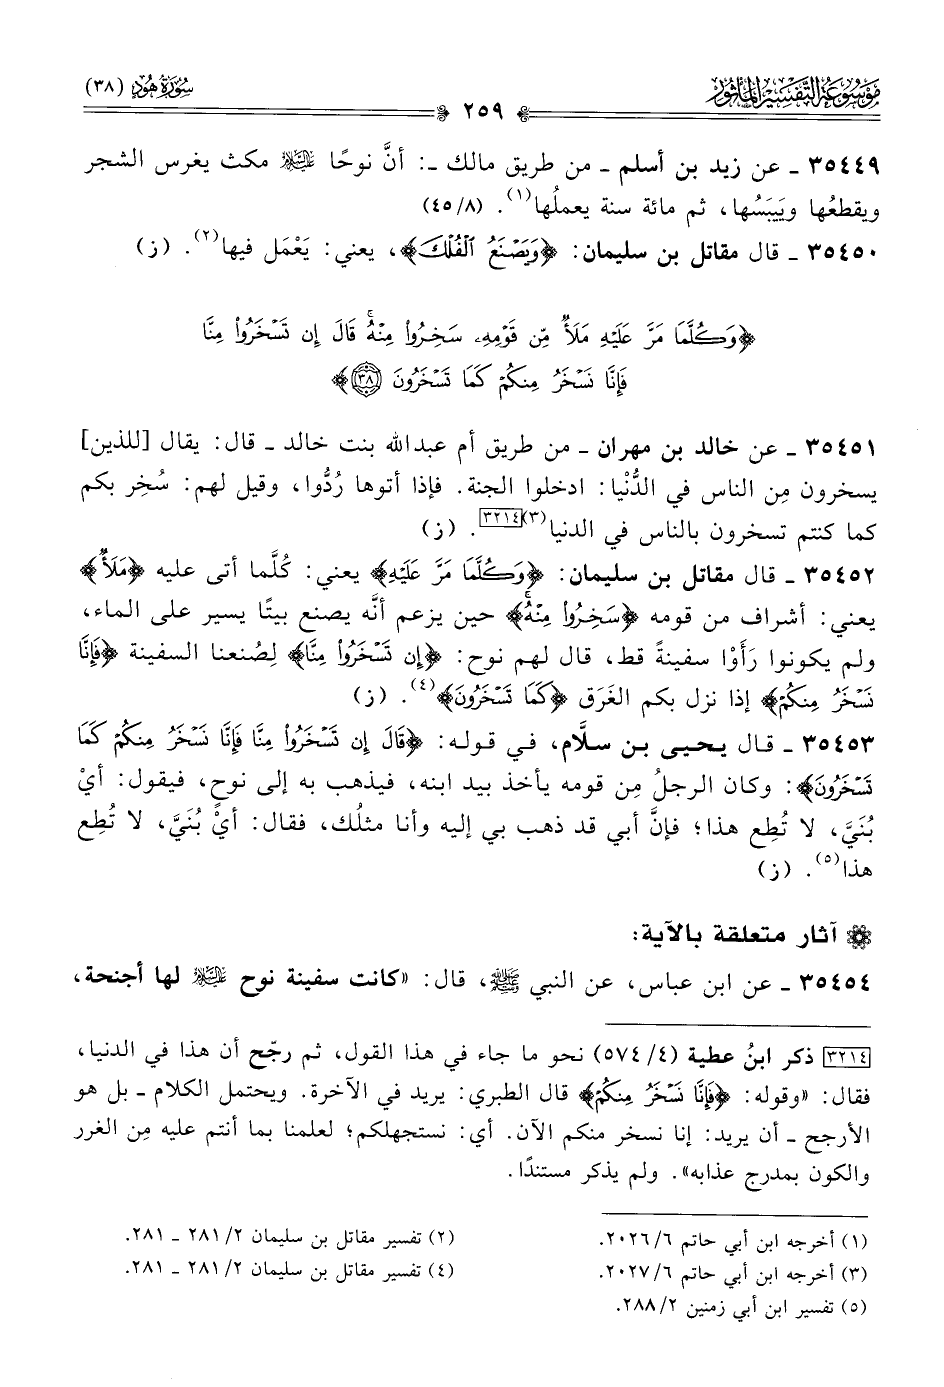 موسوعة التفسير المأثور
سورة هود (٣٨)
٢٥٩
٣٥٤٤٩ ـ عن زيد بن أسلم ـ من طريق مالك ـ: أنَّ نوحًا عليه السلام مكث يغرس الشجر
ويقطعُها ويَيبَسُها، ثم مائة سنة يعملُها(١). (٤٥/٨)
٣٥٤٥٠ ـ قال مقاتل بن سليمان: ﴿وَيَصْنَعُ ٱلْفُلْكَ﴾، يعني: يَعْمَل فيها(٢). (ز)
﴿وَكُلَّمَا مَرَّ عَلَيْهِ مَلَأٌ مِّن قَوْمِهِۦ سَخِرُوا۟ مِنْهُ ۚ قَالَ إِن تَسْخَرُوا۟ مِنَّا
فَإِنَّا نَسْخَرُ مِنكُمْ كَمَا تَسْخَرُونَ ٣٨﴾
٣٥٤٥١ ـ عن خالد بن مهران ـ من طريق أم عبدالله بنت خالد ـ قال: يقال [للذين]
يسخرون مِن الناس في الدُّنْيا: ادخلوا الجنة. فإذا أتوها رُدُّوا، وقيل لهم: سُخِر بكم
كما كنتم تسخرون بالناس في الدنيا(٣)[٣٢١٤]. (ز)
٣٥٤٥٢ ـ قال مقاتل بن سليمان: ﴿وَكُلَّمَا مَرَّ عَلَيْهِ﴾ يعني: كُلَّما أتى عليه ﴿مَلَأٌ﴾
يعني: أشراف من قومه ﴿سَخِرُوا۟ مِنْهُ ۚ﴾ حين يزعم أنَّه يصنع بيتًا يسير على الماء،
ولم يكونوا رَأَوْا سفينةً قط، قال لهم نوح: ﴿إِن تَسْخَرُوا۟ مِنَّا﴾ لِصُنعنا السفينة ﴿فَإِنَّا
نَسْخَرُ مِنكُمْ﴾ إذا نزل بكم الغَرَق ﴿كَمَا تَسْخَرُونَ﴾(٤). (ز)
٣٥٤٥٣ ـ قال يحيى بن سلَّام، في قوله: ﴿قَالَ إِن تَسْخَرُوا۟ مِنَّا فَإِنَّا نَسْخَرُ مِنكُمْ كَمَا
تَسْخَرُونَ﴾: وكان الرجلُ مِن قومه يأخذ بيد ابنه، فيذهب به إلى نوح، فيقول: أيْ
بُنَيَّ، لا تُطِع هذا؛ فإنَّ أبي قد ذهب بي إليه وأنا مثلُك، فقال: أيْ بُنَيَّ، لا تُطِع
هذا(٥). (ز)
آثار متعلقة بالآية:
٣٥٤٥٤ ـ عن ابن عباس، عن النبي ﷺ، قال: «كانت سفينة نوح عليه السلام لها أجنحة،
[٣٢١٤] ذكر ابنُ عطية (٤/ ٥٧٤) نحو ما جاء في هذا القول، ثم رجّح أن هذا في الدنيا،
فقال: «وقوله: ﴿فَإِنَّا نَسْخَرُ مِنكُمْ﴾ قال الطبري: يريد في الآخرة. ويحتمل الكلام ـ بل هو
الأرجح ـ أن يريد: إنا نسخر منكم الآن. أي: نستجهلكم؛ لعلمنا بما أنتم عليه مِن الغرر
والكون بمدرج عذابه». ولم يذكر مستندًا.
(١) أخرجه ابن أبي حاتم ٢٠٢٦/٦.
(٢) تفسير مقاتل بن سليمان ٢٨١/٢ ـ ٢٨١.
(٣) أخرجه ابن أبي حاتم ٢٠٢٧/٦.
(٤) تفسير مقاتل بن سليمان ٢٨١/٢ ـ ٢٨١.
(٥) تفسير ابن أبي زمنين ٢٨٨/٢.